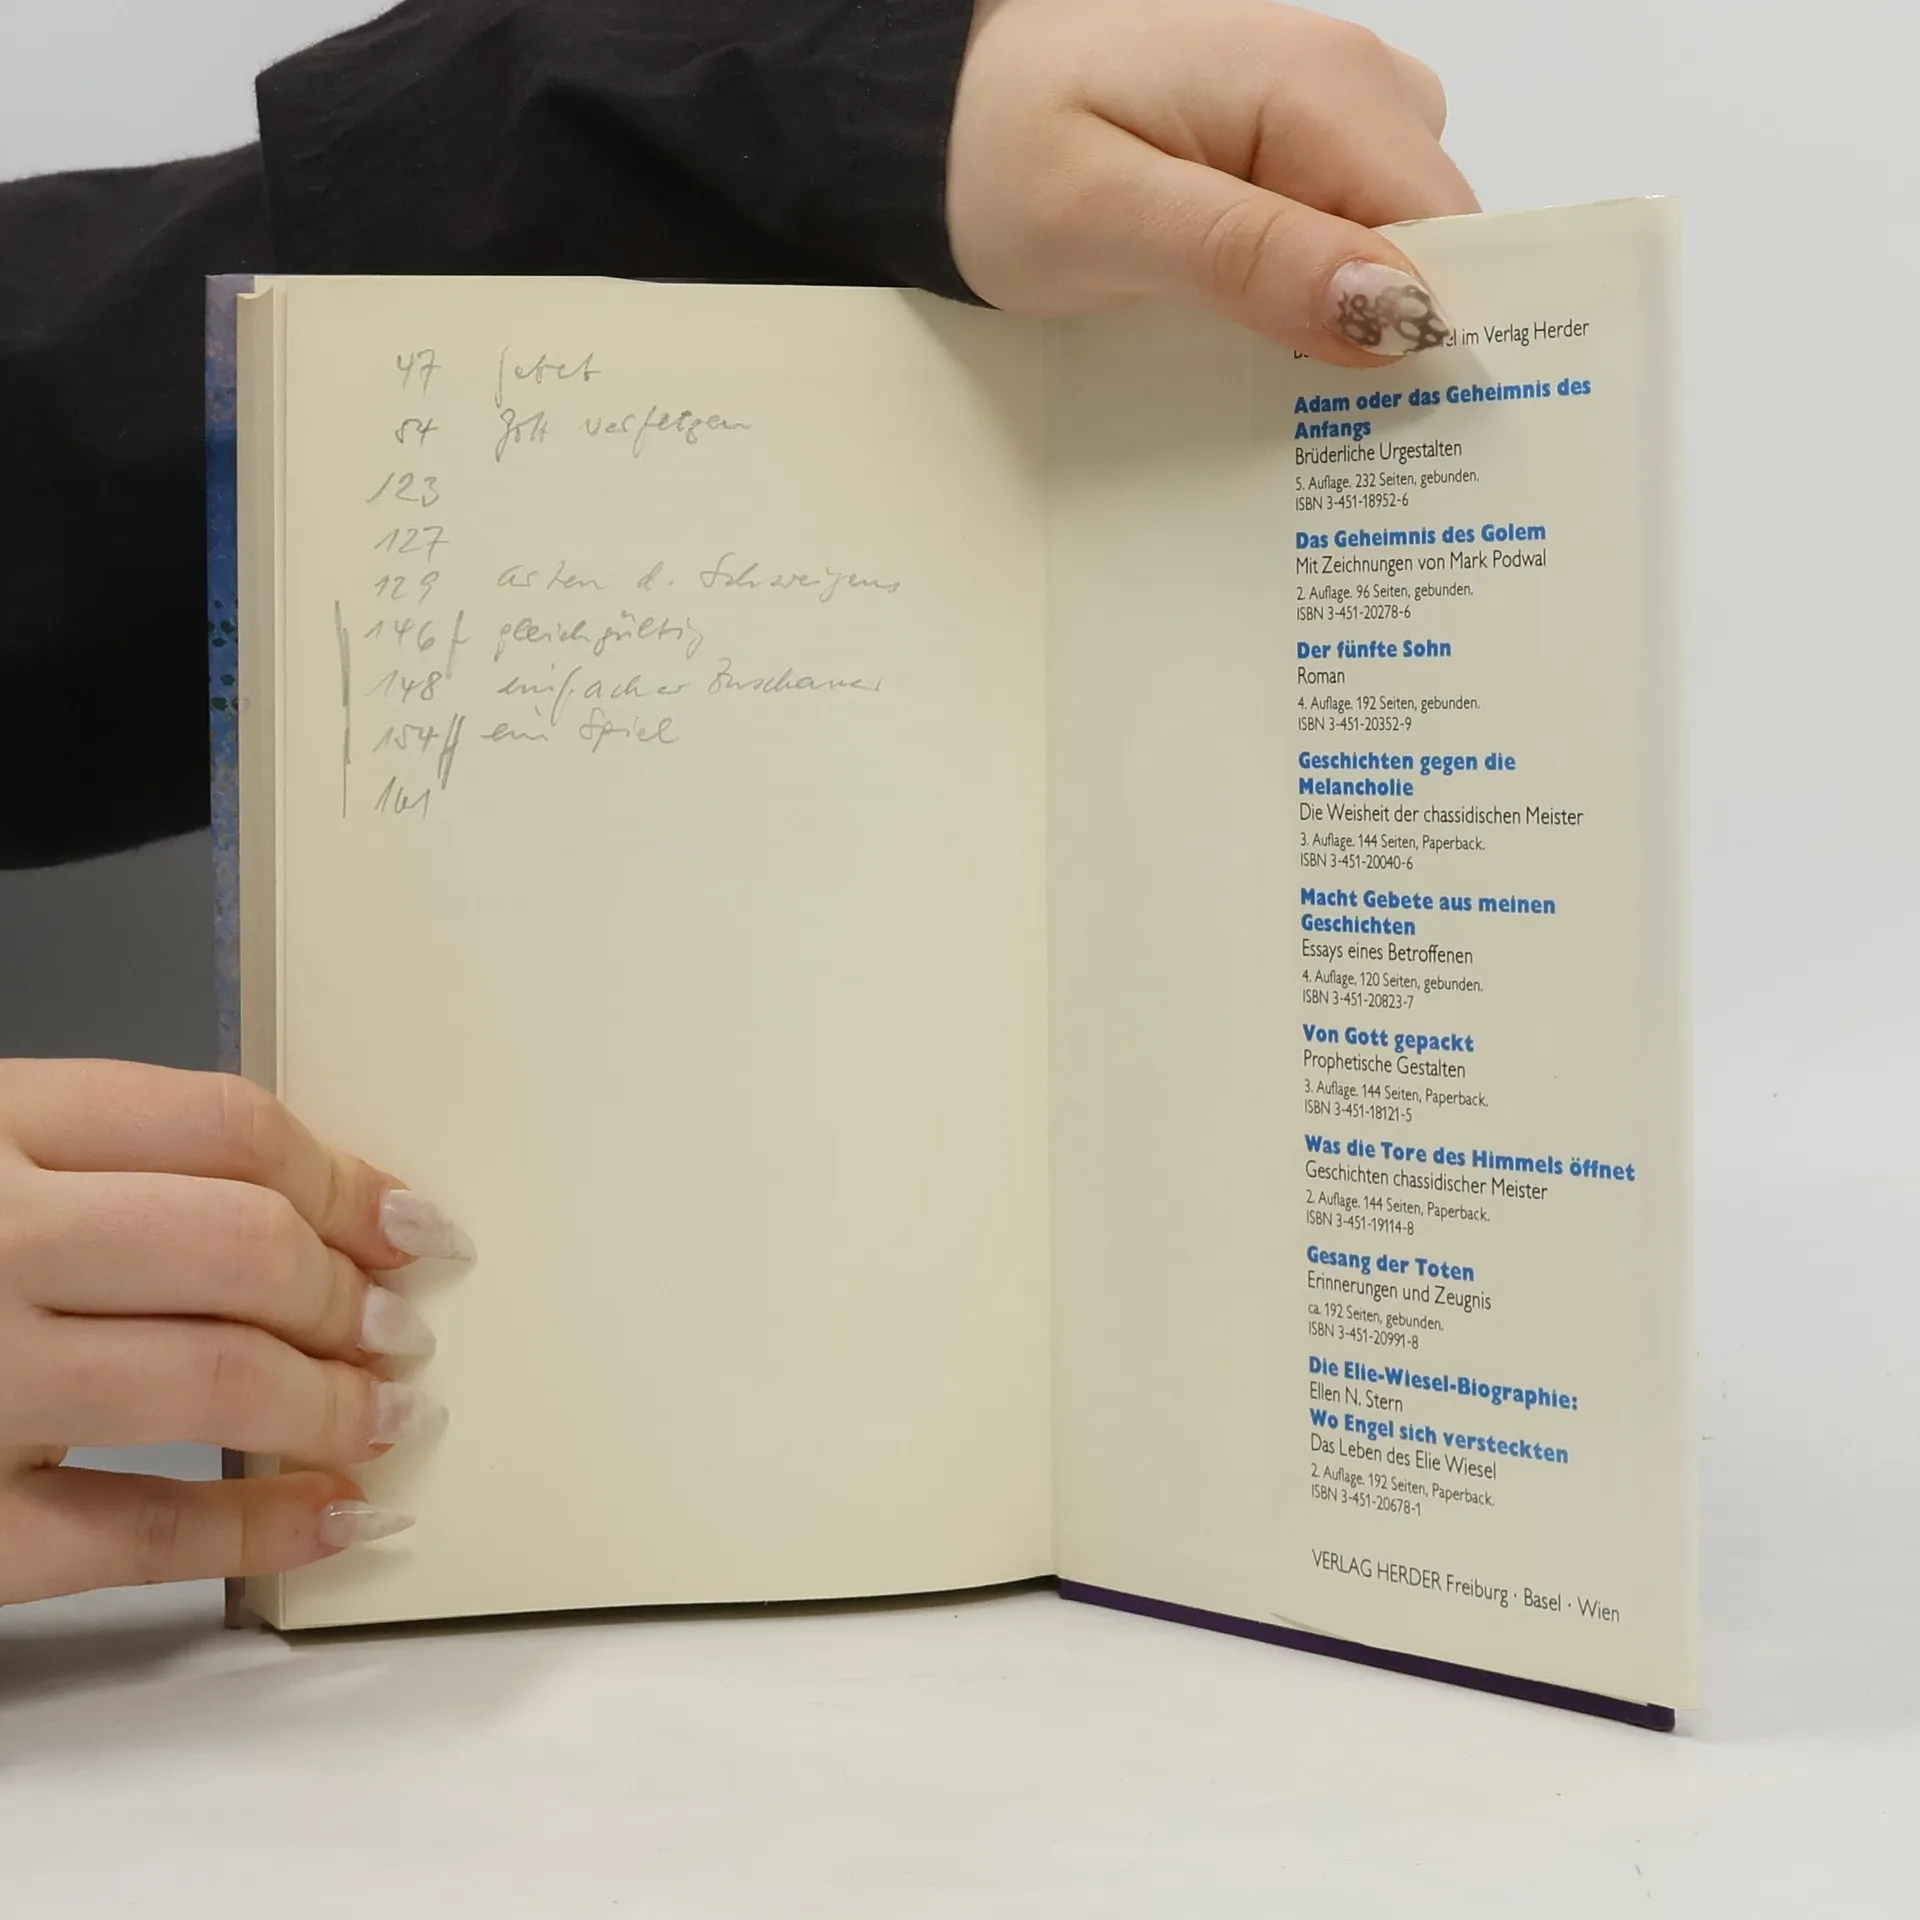 47
54 Gott
123
127
129 Arten d. Schweigens
146 f gleichgültig
148 einfacher Zuschauer
154 ff ein Spiel
161
im Verlag Herder
Adam oder das Geheimnis des
Anfangs
Brüderliche Urgestalten
5. Auflage. 232 Seiten, gebunden.
ISBN 3-451-18952-6
Das Geheimnis des Golem
Mit Zeichnungen von Mark Podwal
2. Auflage. 96 Seiten, gebunden.
ISBN 3-451-20278-6
Der fünfte Sohn
Roman
4. Auflage. 192 Seiten, gebunden.
ISBN 3-451-20352-9
Geschichten gegen die
Melancholie
Die Weisheit der chassidischen Meister
3. Auflage. 144 Seiten, Paperback.
ISBN 3-451-20040-6
Macht Gebete aus meinen
Geschichten
Essays eines Betroffenen
4. Auflage, 120 Seiten, gebunden.
ISBN 3-451-20823-7
Von Gott gepackt
Prophetische Gestalten
3. Auflage. 144 Seiten, Paperback.
ISBN 3-451-18121-5
Was die Tore des Himmels öffnet
Geschichten chassidischer Meister
2. Auflage. 144 Seiten, Paperback.
ISBN 3-451-19114-8
Gesang der Toten
Erinnerungen und Zeugnis
ca. 192 Seiten, gebunden.
ISBN 3-451-20991-8
Die Elie-Wiesel-Biographie:
Ellen N. Stern
Wo Engel sich versteckten
Das Leben des Elie Wiesel
2. Auflage. 192 Seiten, Paperback.
ISBN 3-451-20678-1
VERLAG HERDER Freiburg · Basel · Wien